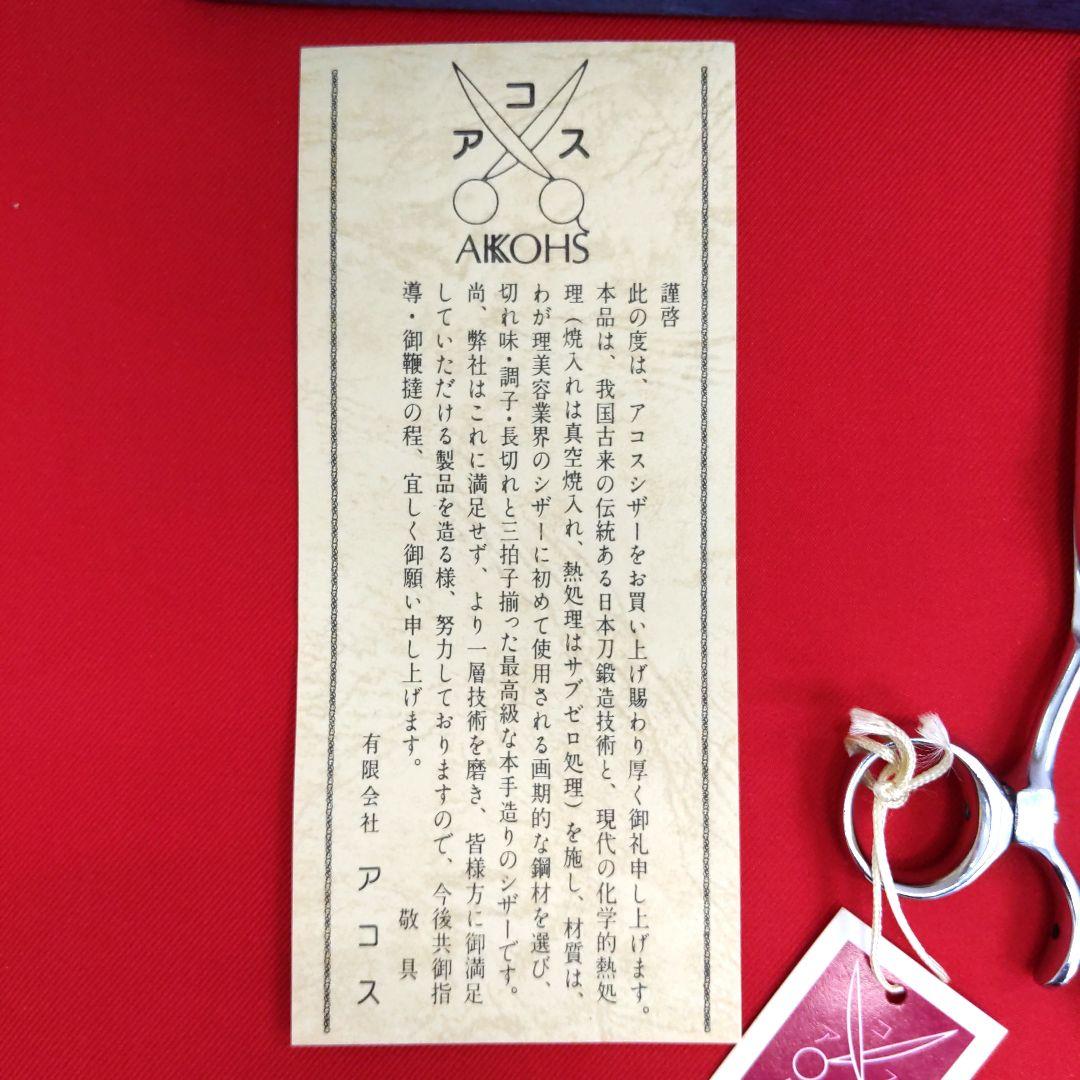 アコス
AKKOHS
謹啓
此の度は、アコスシザーをお買い上げ賜わり厚く御礼申し上げます。
本品は、我国古来の伝統ある日本刀鍛造技術と、現代の化学的熱処
理（焼入れは真空焼入れ、熱処理はサブゼロ処理）を施し、材質は、
わが理美容業界のシザーに初めて使用される画期的な鋼材を選び、
切れ味・調子・長切れと三拍子揃った最高級な本手造りのシザーです。
尚、弊社はこれに満足せず、より一層技術を磨き、皆様方に御満足
していただける製品を造る様、努力しておりますので、今後共御指
導・御鞭撻の程、宜しく御願い申し上げます。
敬具
有限会社 アコス
アコス